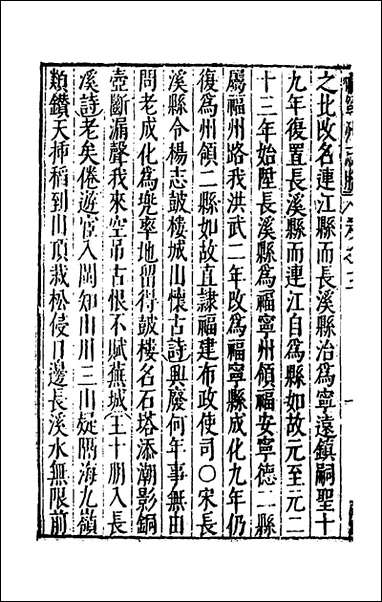 之北改名連江縣而長溪縣治為寧遠鎮嗣聖十
九年復置長溪縣而連江自為縣如故元至元二
十三年始陞長溪縣為福寧州領福安寧德二縣
屬福州路我洪武二年改為福寧縣成化九年仍
復為州領二縣如故直隸福建布政使司○宋長
溪縣令楊志鼓樓城山懷古詩興廢何年事無由
問老成化為兠率地留得鼓樓名石塔添潮影銅
壺斷漏聲我來空弔古恨不賦蕪城王十朋入長
溪詩老矣倦遊宦入閩知山川三山疑隔海九嶺
類鑽天揷稻到山頂栽松侵日邊長溪水無限前